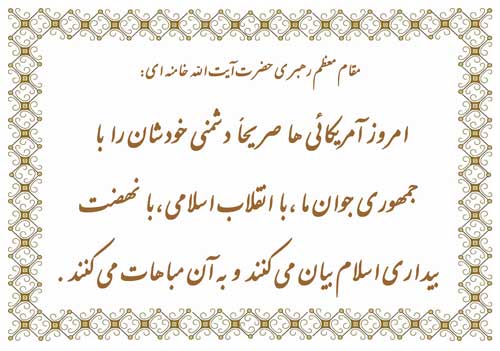 مقام معظم رهبری حضرت آیت الله خامنه ای:
امروز آمریکائی ها صریحاً دشمنی خودشان را با
جمهوری جوان ما ،با انقلاب اسلامی ،با نهضت
بیداری اسلام بیان می کنند و به آن مباهات می کنند .